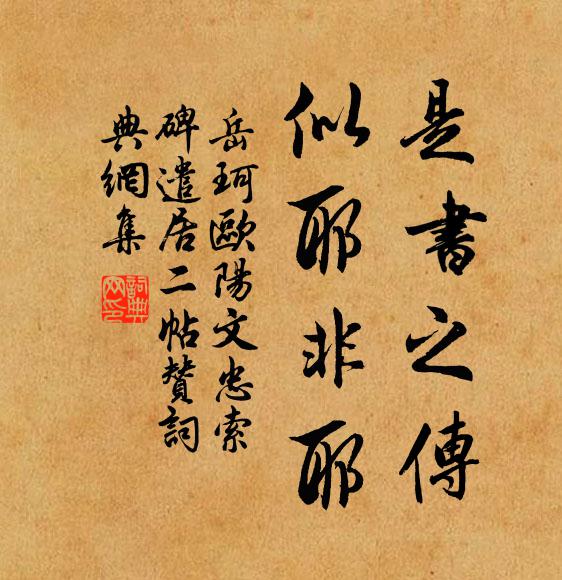 是書之傳
似耶非耶
岳珂歐陽文忠索
碑遣居二帖贊詞
典網集
詞典
网印